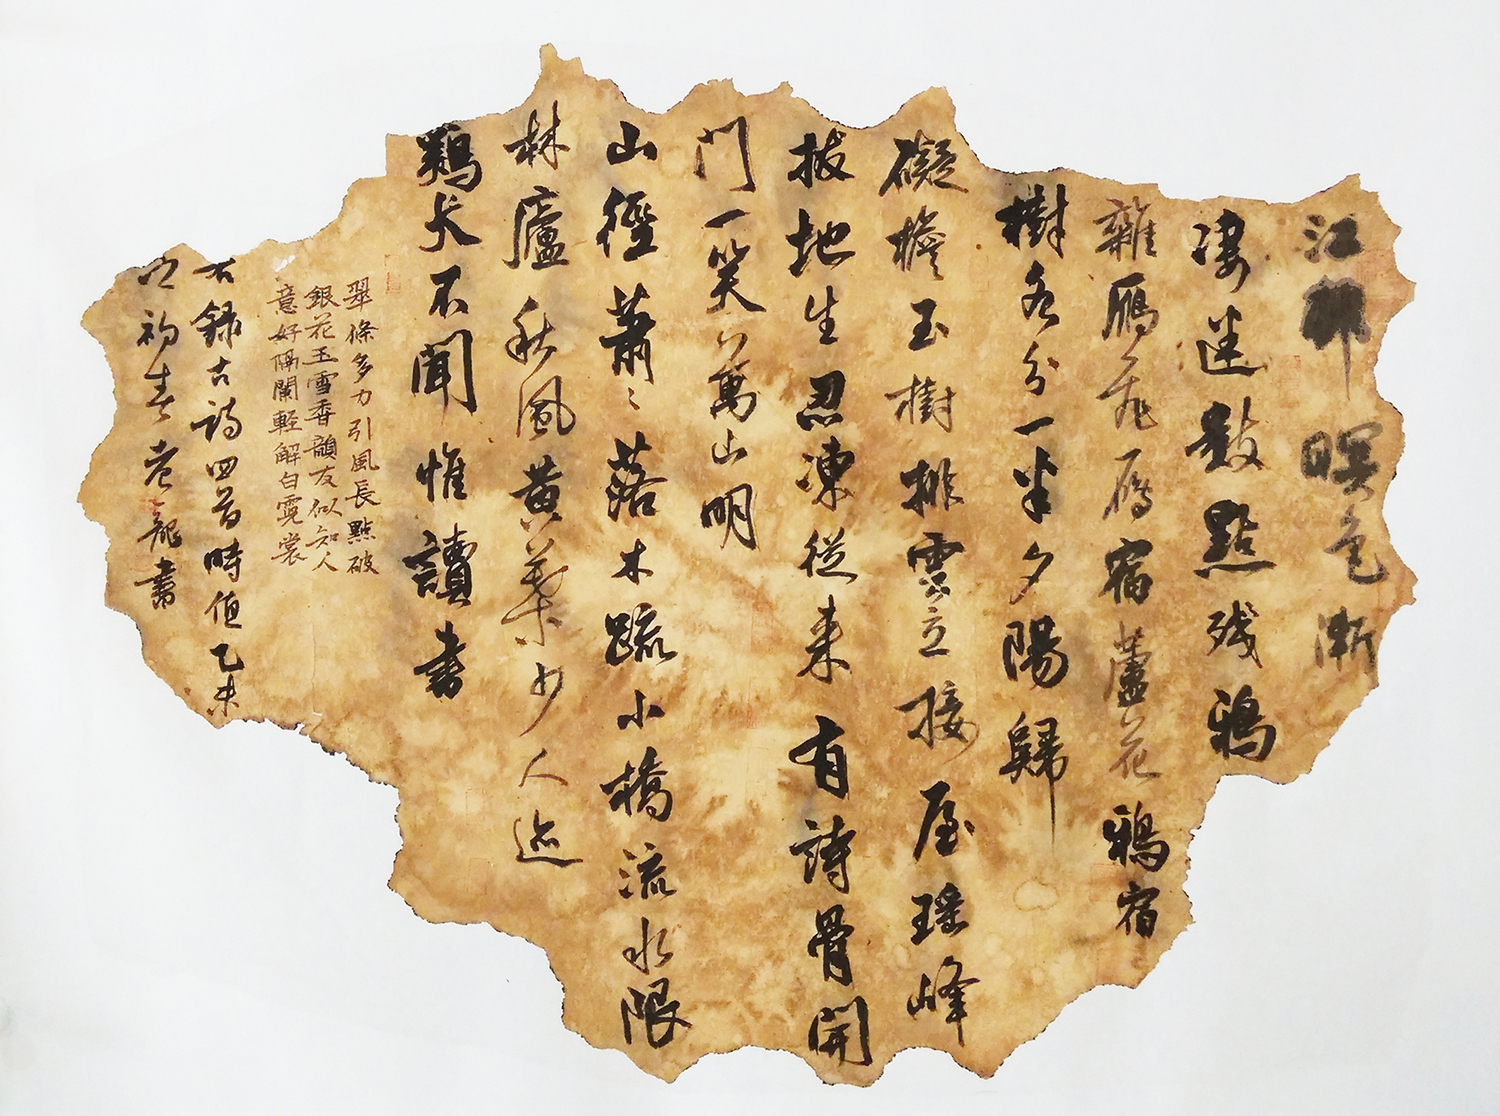 江邨暝色漸
凄迷數點殘鴉
雜雁飛雁宿蘆花鴉宿
樹各分一半夕陽歸
礙檐玉樹排雲立接屋瑤峰
拔地生忍凍從來有詩骨開
門一笑萬山明
山徑蕭〻落木疏小橋流水限
林廬秋風黃葉少人迹
鷄犬不聞惟讀書
翠條多力引風長點破
銀花玉雪香韻友似知人
意好隔闌輕解白霓裳
右錄古詩四首時值乙未
之初春老龍書